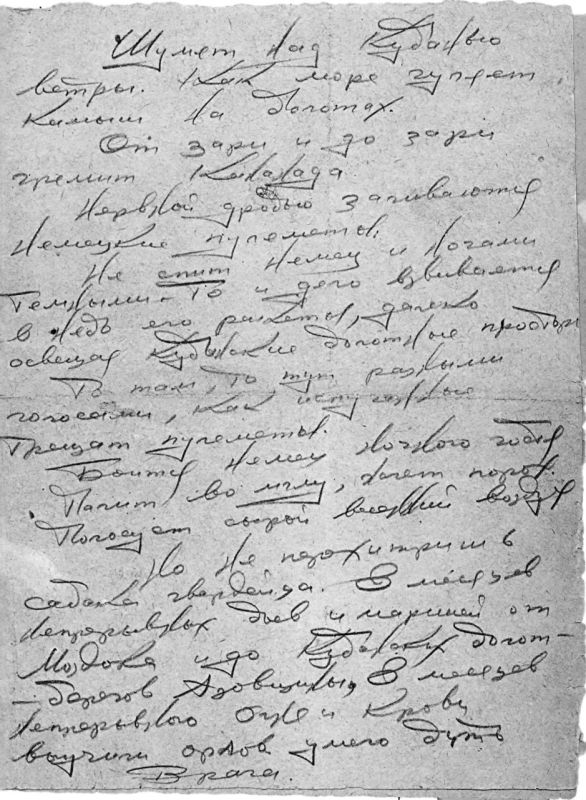 Шумят над Кубанью
ветры. Как море гуляет
Камыш на болотах.
От зари и до зари
гремит Канонада
Нервной дробью заливаются
Немецкие пулеметы.
Не спит Немец и Ночами
Темными. То и дело взвивается
в небо его ракеты, далеко
освещая Кубанские болотные просторы
То там, то тут разными
голосами, как испуганные
Трещат пулеметы.
Боится Немец Ночного боя
Палит во мглу, жжет порох.
Полосует сырой весенний воздух
Но Не перехитришь
гвардейца. 8 месяцев
Непрерывных боев и маршей от
Моздока и до Кубанских болот
– берегов Азовщины, 8 месяцев
Непрерывного Огня и Крови
выучили орлов умело бить
Врага.